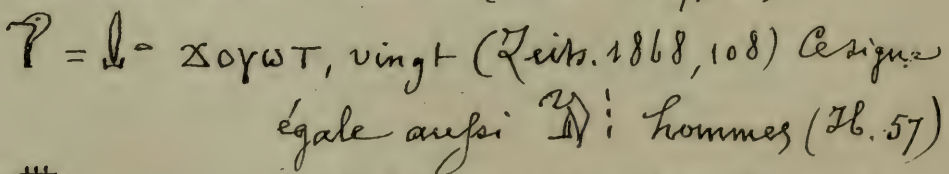 = ϫⲟⲩⲱⲧ, vingt (Zeits. 1868, 108) Ce signe
égale aussi hommes (Ib. 57)